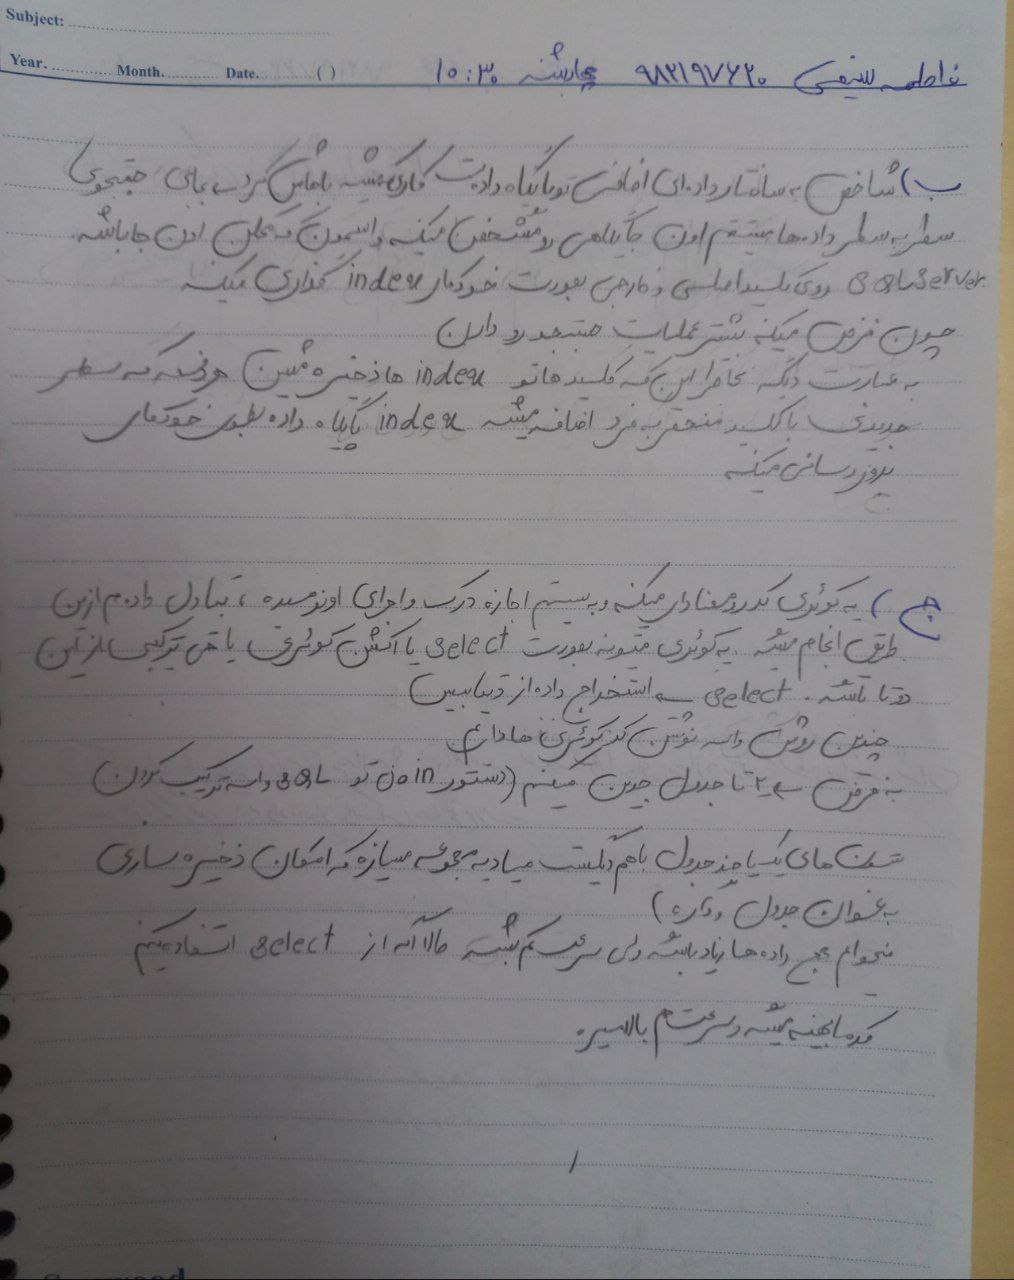 Subject:
Year. Month. Date. ( )
فاطمه ۹۸۲۱۹۷۶۲۰ چهارشنبه ۱۰:۳۰
ب) شاخص یه ساختار داده‌ای اضافس تو پایگاه دادست کاری میشه باهاش کرد بجای جستجوی
سطر به سطر داده‌ها مستقیم اون جایگاهی رو مشخص میکنه واسمون که ممکن اون جا باشه.
SQL Server روی کلید اصلی و خارجی بصورت خودکار index گذاری میکنه
چون فرض میکنه بیشتر عملیات جستجو رو دارن
به عبارت دیگه بخاطر این که کلیدها تو index ها ذخیره میشن هر دفعه که سطر
جدیدی با کلید منحصر به فرد اضافه میشه index پایگاه داده بطور خودکار
بروزرسانی میکنه
ج) یه کوئری کد رو معنادار میکنه و به سیستم اجازه درک و اجرای اونو میده ، تبادل داده م از این
طریق انجام میشه. یه کوئری میتونه بصورت select یا اکشن کوئری یا حتی ترکیبی از این
دو تا باشه. select ← استخراج داده از دیتابیس
چندین روش واسه نوشتن کد کوئری ها داریم
به فرض ← ۲ تا جدول جوین میکنیم (دستور join تو SQL واسه ترکیب کردن
ستون های یک یا چند جدول باهم دیگست میاد یه مجموعه میسازه که امکان ذخیره سازی
به عنوان جدول و داره)
میخوایم حجم داده ها زیاد باشه ولی سرعت کم نشه حالا اگه از select استفاده کنیم
کد ما بهینه میشه و سرعتم بالا میره.
۱